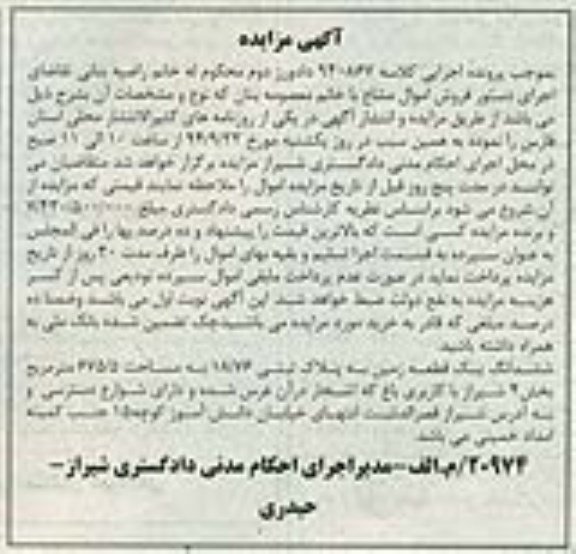 آگهی مزایده
بموجب پرونده اجرایی کلاسه ۹۴۰۸۶۷ دادورز دوم محکوم له خانم راضیه بنانی تقاضای
اجرای دستور فروش اموال مشاع با خانم معصومه بنان که نوع و مشخصات آن بشرح ذیل
می باشد از طریق مزایده و انتشار آگهی در یکی از روزنامه های کثیرالانتشار محلی استان
فارس را نموده به همین سبب در روز یکشنبه مورخ ۹۴/۹/۲۲ از ساعت ۱۰ الی ۱۱ صبح
در محل اجرای احکام مدنی دادگستری شیراز مزایده برگزار خواهد شد متقاضیان می
توانند در مدت پنج روز قبل از تاریخ مزایده اموال را ملاحظه نمایند قیمتی که مزایده از
آن شروع می شود براساس نظریه کارشناس رسمی دادگستری مبلغ
و برنده مزایده کسی است که بالاترین قیمت را پیشنهاد و ده درصد بها را فی المجلس
به عنوان سپرده به قسمت اجرا تسلیم و بقیه بهای اموال را ظرف مدت ۳۰ روز از تاریخ
مزایده پرداخت نماید در صورت عدم پرداخت مابقی اموال سپرده تودیعی پس از کسر
هزینه مزایده به نفع دولت ضبط خواهد شد. این آگهی نوبت اول می باشد وضمنا ده
درصد مبلغی که قادر به خرید مورد مزایده می باشیدچک تضمین شده بانک ملی به
همراه داشته باشید.
ششدانگ یک قطعه زمین به پلاک ثبتی ۱۸/۷۶ به مساحت ۳۷۵/۵ مترمربع
بخش۴ شیراز با کاربری باغ که اشجار درآن غرس شده و دارای شوارع دسترسی و
به آدرس شیراز قصرالدشت انتهای خیابان دانش آموز کوچه۱۵ جنب کمیته
امداد خمینی می باشد.
۲۰۹۷۴/م.الف-مدیراجرای احکام مدنی دادگستری شیراز-
حیدری